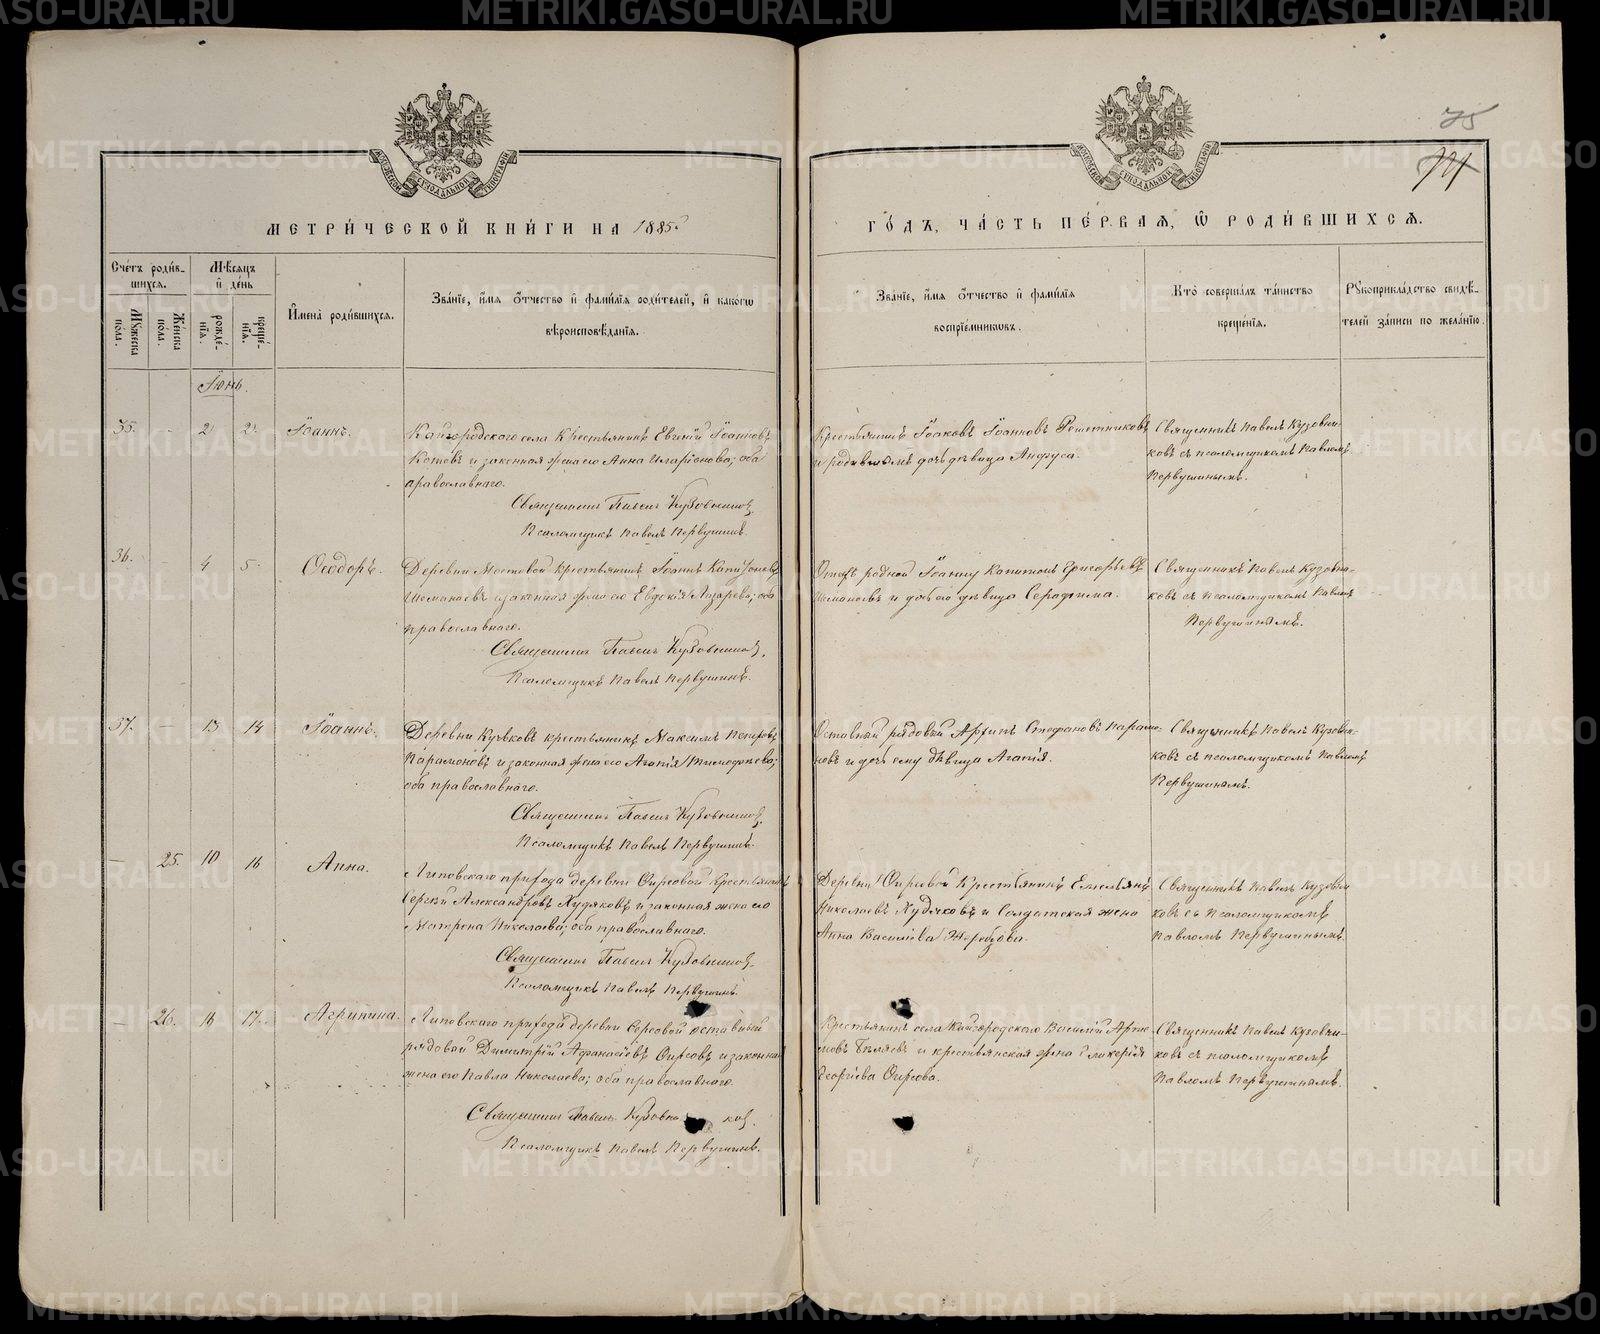 75
МЕТРИ́ЧЕСКОЙ КНИ́ГИ НА 1885й
ГО́ДЪ, ЧА́СТЬ ПЕ́РВАѦ, Ѽ РОДИ́ВШИХСѦ.
Сче́тъ роди́в-
шихсѧ.
Мꙋжеска пола.
Же́нска пола.
Мѣ́сѧцъ и҆ де́нь
рожде́-нїѧ.
креще́-нїѧ.
И҆мена̀ роди́вшихсѧ.
Зва́нїе, и҆́мѧ ѻ҆́тчество и҆ фами́лїѧ роди́телей, и҆ како́гѡ
вѣроисповѣ́данїѧ.
Зва́нїе, и҆́мѧ ѻ҆́тчество и҆ фами́лїѧ
воспрїе́мникѡвъ.
Кто̀ соверша́лъ та́инство
креще́нїѧ.
Рꙋкоприкла́дство свидѣ́-
телей за́писи по жела́нїю.
МОСКОВСКОЙ СѴНОДАЛЬНОЙ ТИПОГРАФІИ
МОСКОВСКОЙ СѴНОДАЛЬНОЙ ТИПОГРАФІИ
Іюнь.
35. - 2 2. Іоаннъ.
Кайгородскаго села Крестьянинъ Евгеній Іоанновъ
Котовъ и законная жена его Анна Иларіонова; оба
православнаго.
Священникъ Павелъ Кузовниковъ
Псаломщикъ Павелъ Первушинъ.
Крестьянинъ Іоаковъ Іоанновъ Решетниковъ
дочь дѣвица Анфуса.
Священникъ Павелъ Кузовни-
ковъ съ псаломщикомъ Павломъ
Первушинымъ.
36. - 4 5. Ѳеодоръ.
Деревни Мостовой крестьянинъ Іоаннъ Капитоновъ
Шеманаевъ и законная жена его Евдокія Лазарева; оба
православнаго.
Священникъ Павелъ Кузовниковъ.
Псаломщикъ Павелъ Первушинъ.
Отецъ родной Іоанну Капитонъ
и дочь его дѣвица Серафима.
Священникъ Павелъ Кузовни-
ковъ съ псаломщикомъ Павломъ
Первушинымъ.
37. - 13 14 Іоаннъ.
Деревни крестьянинъ Максимъ Петровъ
Парамоновъ и законная жена его Агапія Тимофеева;
оба православнаго.
Священникъ Павелъ Кузовниковъ.
Псаломщикъ Павелъ Первушинъ.
Отставной рядовой Архипъ Стефановъ Парамо-
новъ и дочь ему дѣвица Агапія.
Священникъ Павелъ Кузовни-
ковъ съ псаломщикомъ Павломъ
Первушинымъ.
- 25. 10 16 Анна.
Липовскаго прихода деревни Фирсовой Крестьянинъ
Сергій Александровъ Худяковъ и законная жена его
Матрона Николаева; оба православнаго.
Священникъ Павелъ Кузовниковъ.
Псаломщикъ Павелъ Первушинъ.
Деревни Фирсовой Крестьянинъ Емельянъ
Николаевъ Худяковъ и Солдатская жена
Анна Васильева
Священникъ Павелъ Кузовни
ковъ съ Псаломщикомъ
Павломъ Первушинымъ.
- 26. 16 17. Агрипина.
Липовскаго прихода деревни Фирсовой отставный
рядовой Димитрій Афанасіевъ Фирсовъ и законная
жена его Павла Николаева; оба православнаго.
Священникъ Павелъ Кузовниковъ.
Псаломщикъ Павелъ Первушинъ.
Крестьянинъ села Кайгородскаго Василій Арте
мовъ Бѣляевъ и крестьянская жена Гликерія
Георгіева Фирсова.
Священникъ Павелъ Кузовни-
ковъ съ псаломщикомъ
Павломъ Первушинымъ.
METRIKI.GASO-URAL.RU